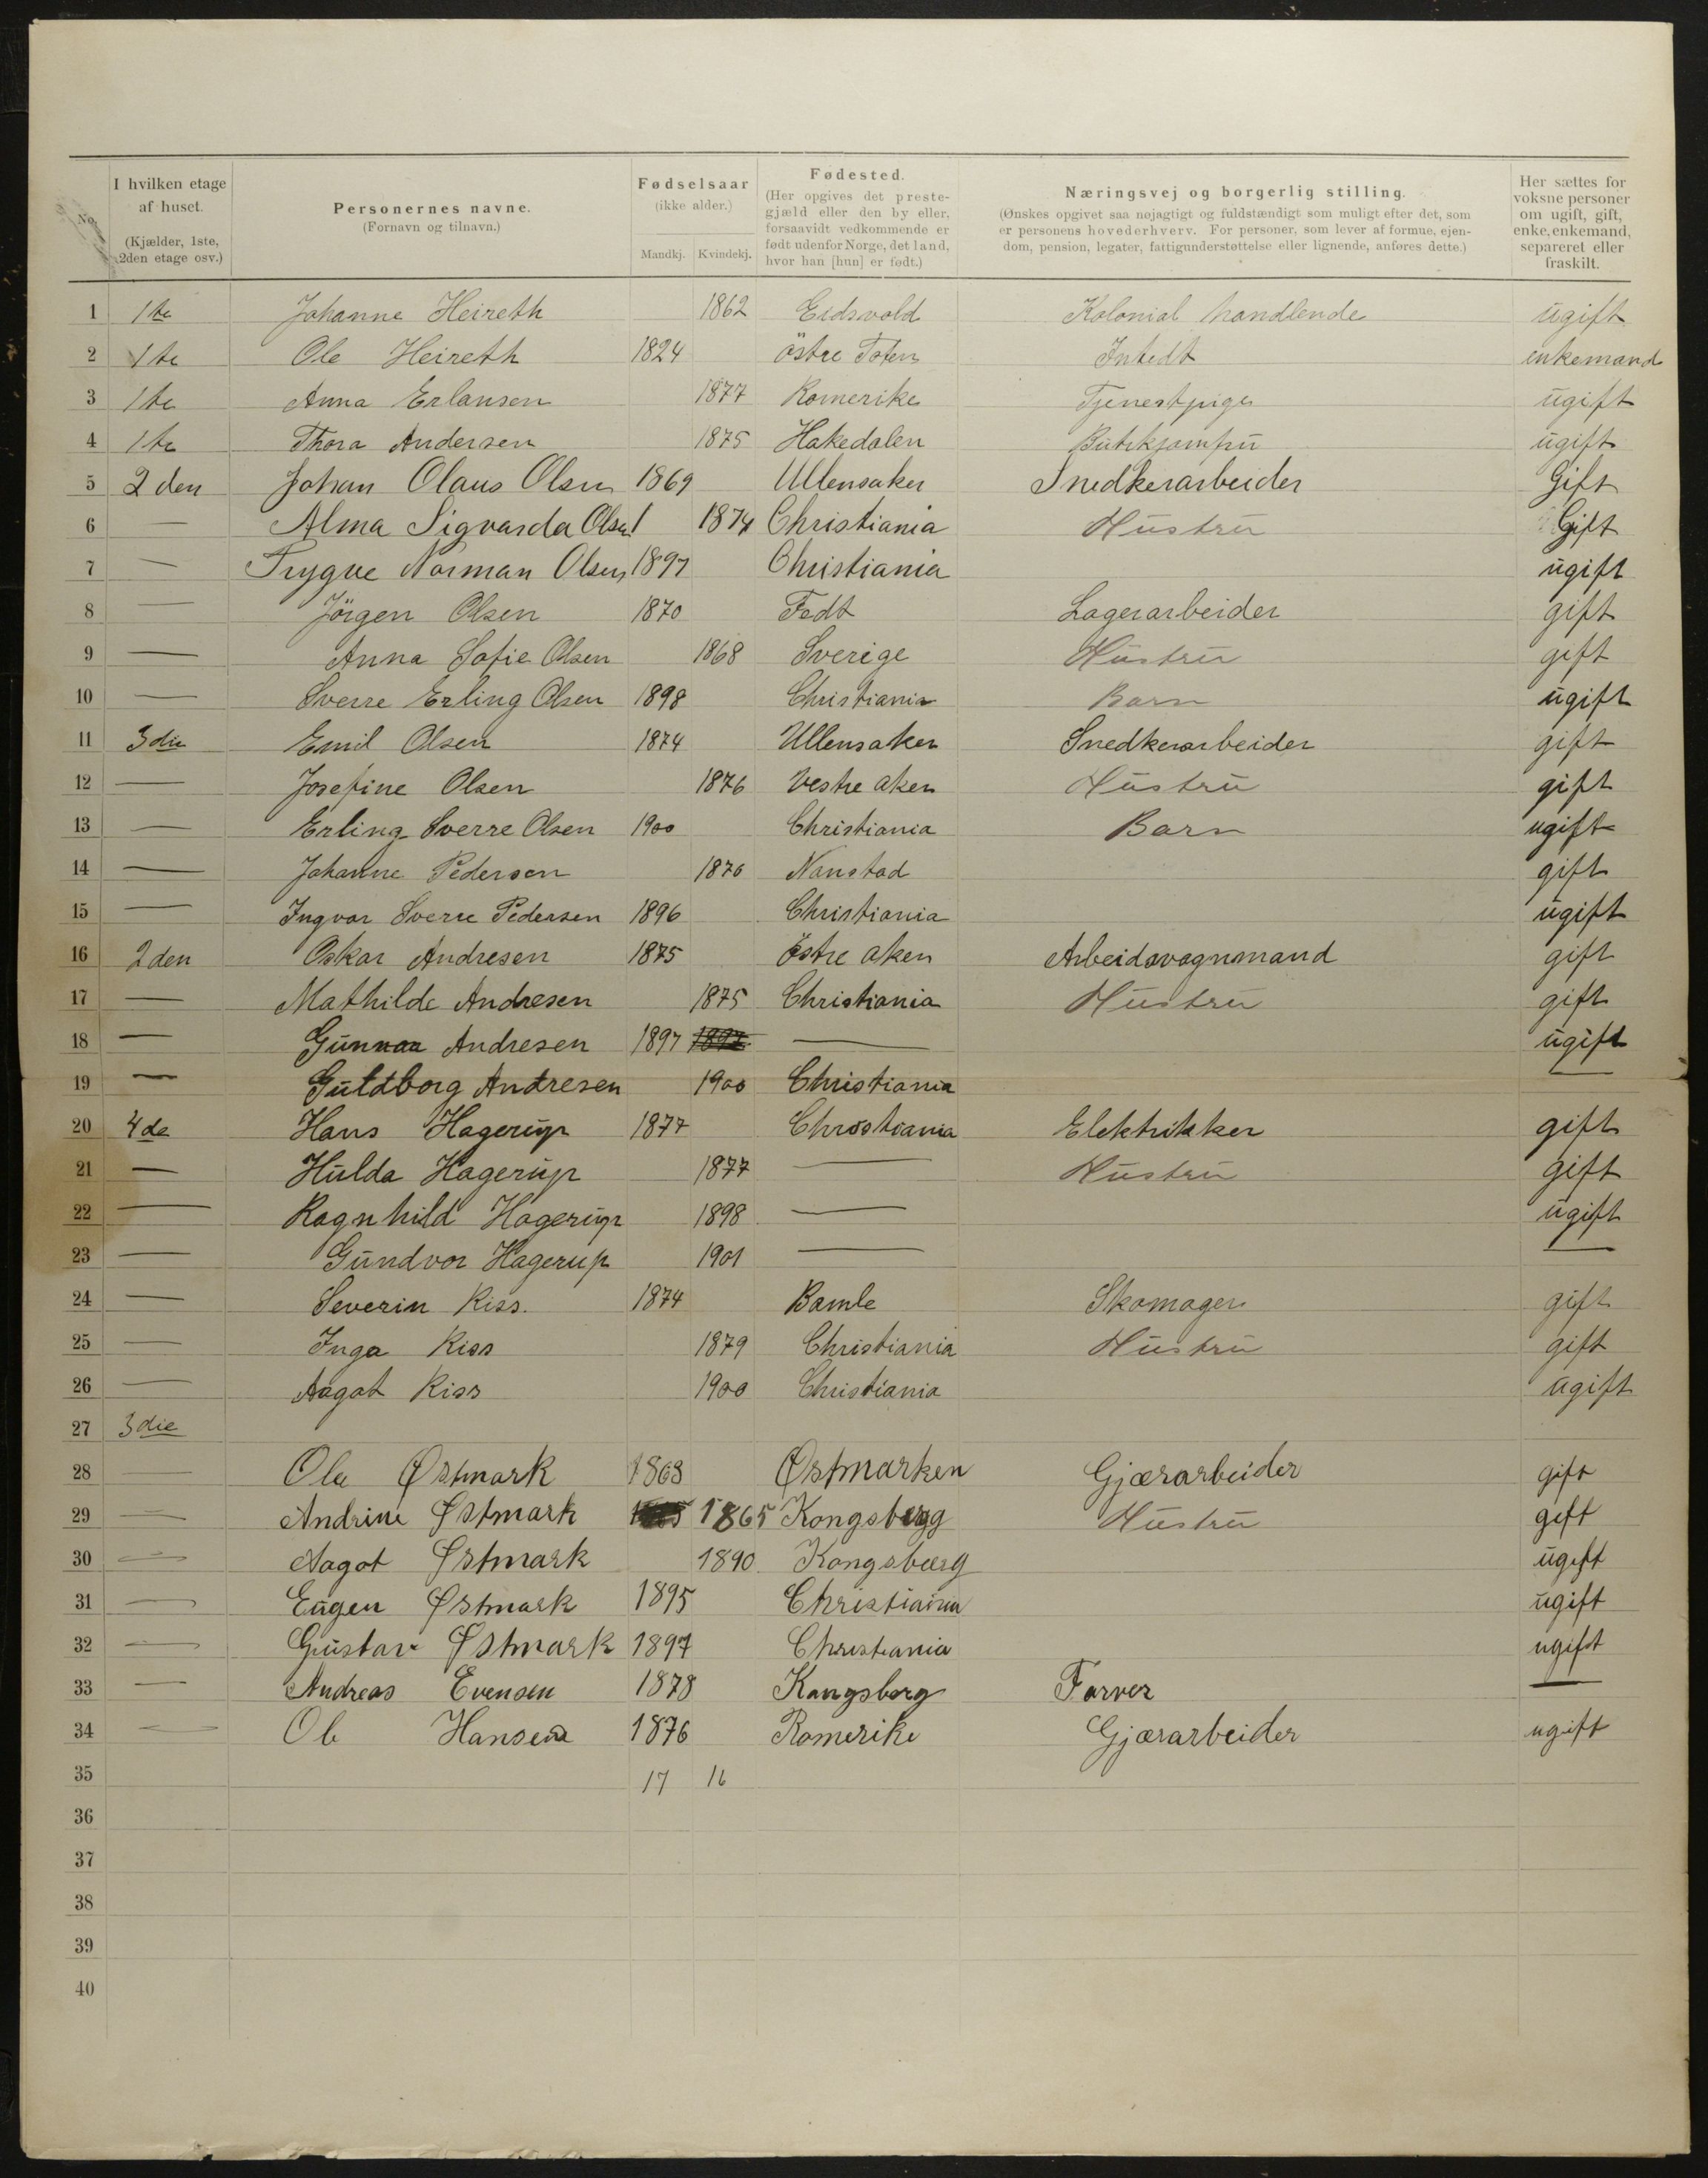 No. I hvilken etage af huset. (Kjælder, 1ste, 2den etage osv.) Personernes navne. (Fornavn og tilnavn.) Fødselsaar (ikke alder.) Mandkj. Kvindekj. Fødested. (Her opgives det prestegjæld eller den by eller, forsaavidt vedkommende er født udenfor Norge, det land, hvor han [hun] er født.) Næringsvej og borgerlig stilling. (Ønskes opgivet saa nøjagtigt og fuldstændigt som muligt efter det, som er personens hovederhverv. For personer, som lever af formue, ejendom, pension, legater, fattigunderstøttelse eller lignende, anføres dette.) Her sættes for voksne personer om ugift, gift, enke, enkemand, separeret eller fraskilt.
1 1te Johanne Heireth 1862 Eidsvold Kolonial handlende ugift
2 1te Ole Heireth 1824 östre Toten Intedt enkemand
3 1te Anna Erlansen 1877 Romerike Tjenestpige ugift
4 1te Thora Andersen 1875 Hakedalen Butikjomfru ugift
5 2den Johan Olaus Olsen 1869 Ullensaker Snedkerarbeider Gift
6 — Alma Sigvarda Olsen 1874 Christiania Hustru Gift
7 — Trygve Norman Olsen 1897 Christiania ugift
8 — Jörgen Olsen 1870 Fedt Lagerarbeider gift
9 — Anna Sofie Olsen 1868 Sverige Hustru gift
10 — Sverre Erling Olsen 1898 Christiania Barn ugift
11 3die Emil Olsen 1874 Ullensaker Snedkerarbeider gift
12 — Josefine Olsen 1876 Vestre aker Hustru gift
13 — Erling Sverre Olsen 1900 Christiania Barn ugift
14 — Johanne Pedersen 1876 Nanstad gift
15 — Ingvar Sverre Pedersen 1896 Christiania ugift
16 2den Oskar Andresen 1875 östre aker Arbeidsvognmand gift
17 — Mathilde Andresen 1875 Christiania Hustru gift
18 — Gunnar Andresen 1897 1897 — ugift
19 — Guldborg Andresen 1900 Christiania —
20 4de Hans Hagerup 1877 Christiania Elektrikker gift
21 — Hulda Hagerup 1877 — Hustru gift
22 — Ragnhild Hagerup 1898 — ugift
23 — Gundvor Hagerup 1901 — —
24 — Severin Kiss. 1874 Bamle Skomager gift
25 — Inga Kiss 1879 Christiania Hustru gift
26 — Aagot Kiss 1900 Christiania ugift
27 3die
28 — Ole Østmark 1868 Østmarken Gjærarbeider gift
29 — Andrine Østmark 1865 Kongsberg Hustru gift
30 — Aagot Østmark 1890 Kongsberg ugift
31 — Eugen Østmark 1895 Christiania ugift
32 — Gustav Østmark 1897 Christiania ugift
33 — Andreas Evensen 1878 Kongsberg Farver —
34 — Ole Hansen 1876 Romerike Gjærarbeider ugift
35 17 16
36
37
38
39
40